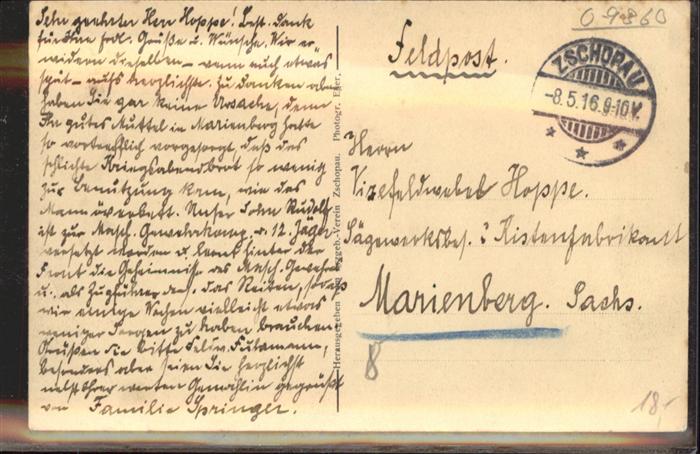 Sehr geehrter Herr Hoppe! Best. Dank
für Ihre frdl. Grüße u. Wünsche. Wir er-
widern dieselben – wenn auch etwas
spät – aufs herzlichste. Zu danken aber
haben Sie gar keine Ursache, denn
Ihr gutes Muttel in Marienberg hatte
so vortrefflich vorgesorgt, daß das
schlichte Kriegsabendbrot so wenig
zur Benutzung kam, wie das
Unser Sohn Rudolf
ist zur Masch. Gewehrkomp. d. 12. Jäger
versetzt worden u. lernt hinter der
Front die Geheimnisse des Masch. Gewehrs
u. als Zugführer das Reiten, sodaß
wir einige Wochen vielleicht etwas
weniger Sorgen zu haben brauchen.
Grüßen Sie bitte
besonders aber seien Sie herzlichst
nebst Ihrer werten Gemahlin gegrüßt
von Familie Springer.
Herausgegeben Erzgeb.-Verein Zschopau. Photogr. Eger,
09860
Feldpost.
ZSCHOPAU
-8.5.16.9-10V.
Herrn
Vizefeldwebel Hoppe.
Sägewerksbes. & Kistenfabrikant
Marienberg. Sachs.
8
18,-